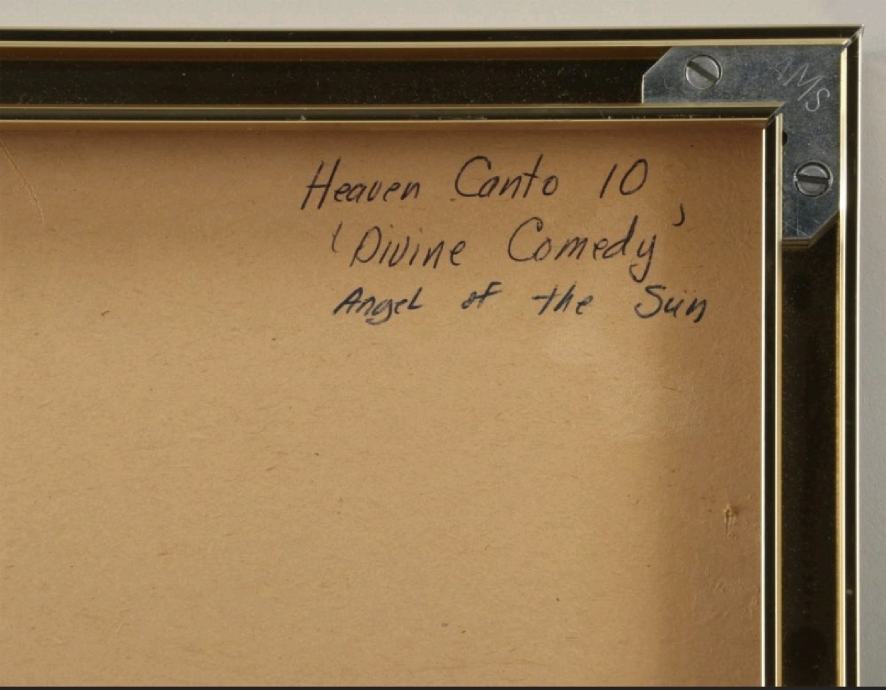 AMS
Heaven Canto 10
'Divine Comedy'
Angel of the Sun